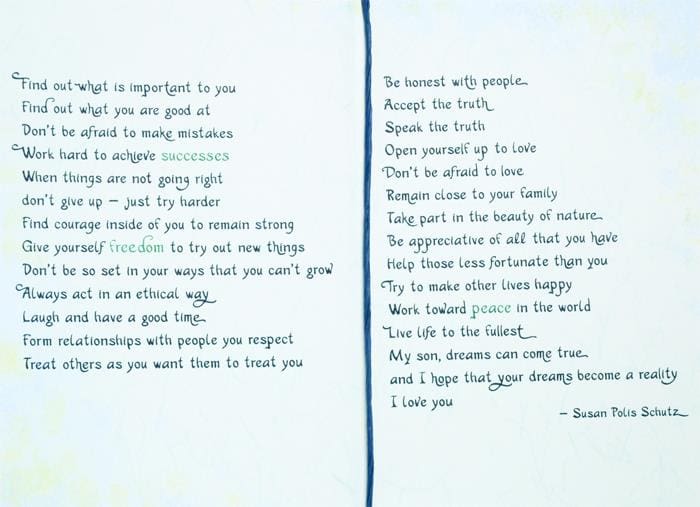 Find out what is important to you
Find out what you are good at
Don't be afraid to make mistakes
Work hard to achieve successes
When things are not going right
don't give up – just try harder
Find courage inside of you to remain strong
Give yourself freedom to try out new things
Don't be so set in your ways that you can't grow
Always act in an ethical way
Laugh and have a good time
Form relationships with people you respect
Treat others as you want them to treat you
Be honest with people
Accept the truth
Speak the truth
Open yourself up to love
Don't be afraid to love
Remain close to your family
Take part in the beauty of nature
Be appreciative of all that you have
Help those less fortunate than you
Try to make other lives happy
Work toward peace in the world
Live life to the fullest
My son, dreams can come true
and I hope that your dreams become a reality
I love you
– Susan Polis Schutz